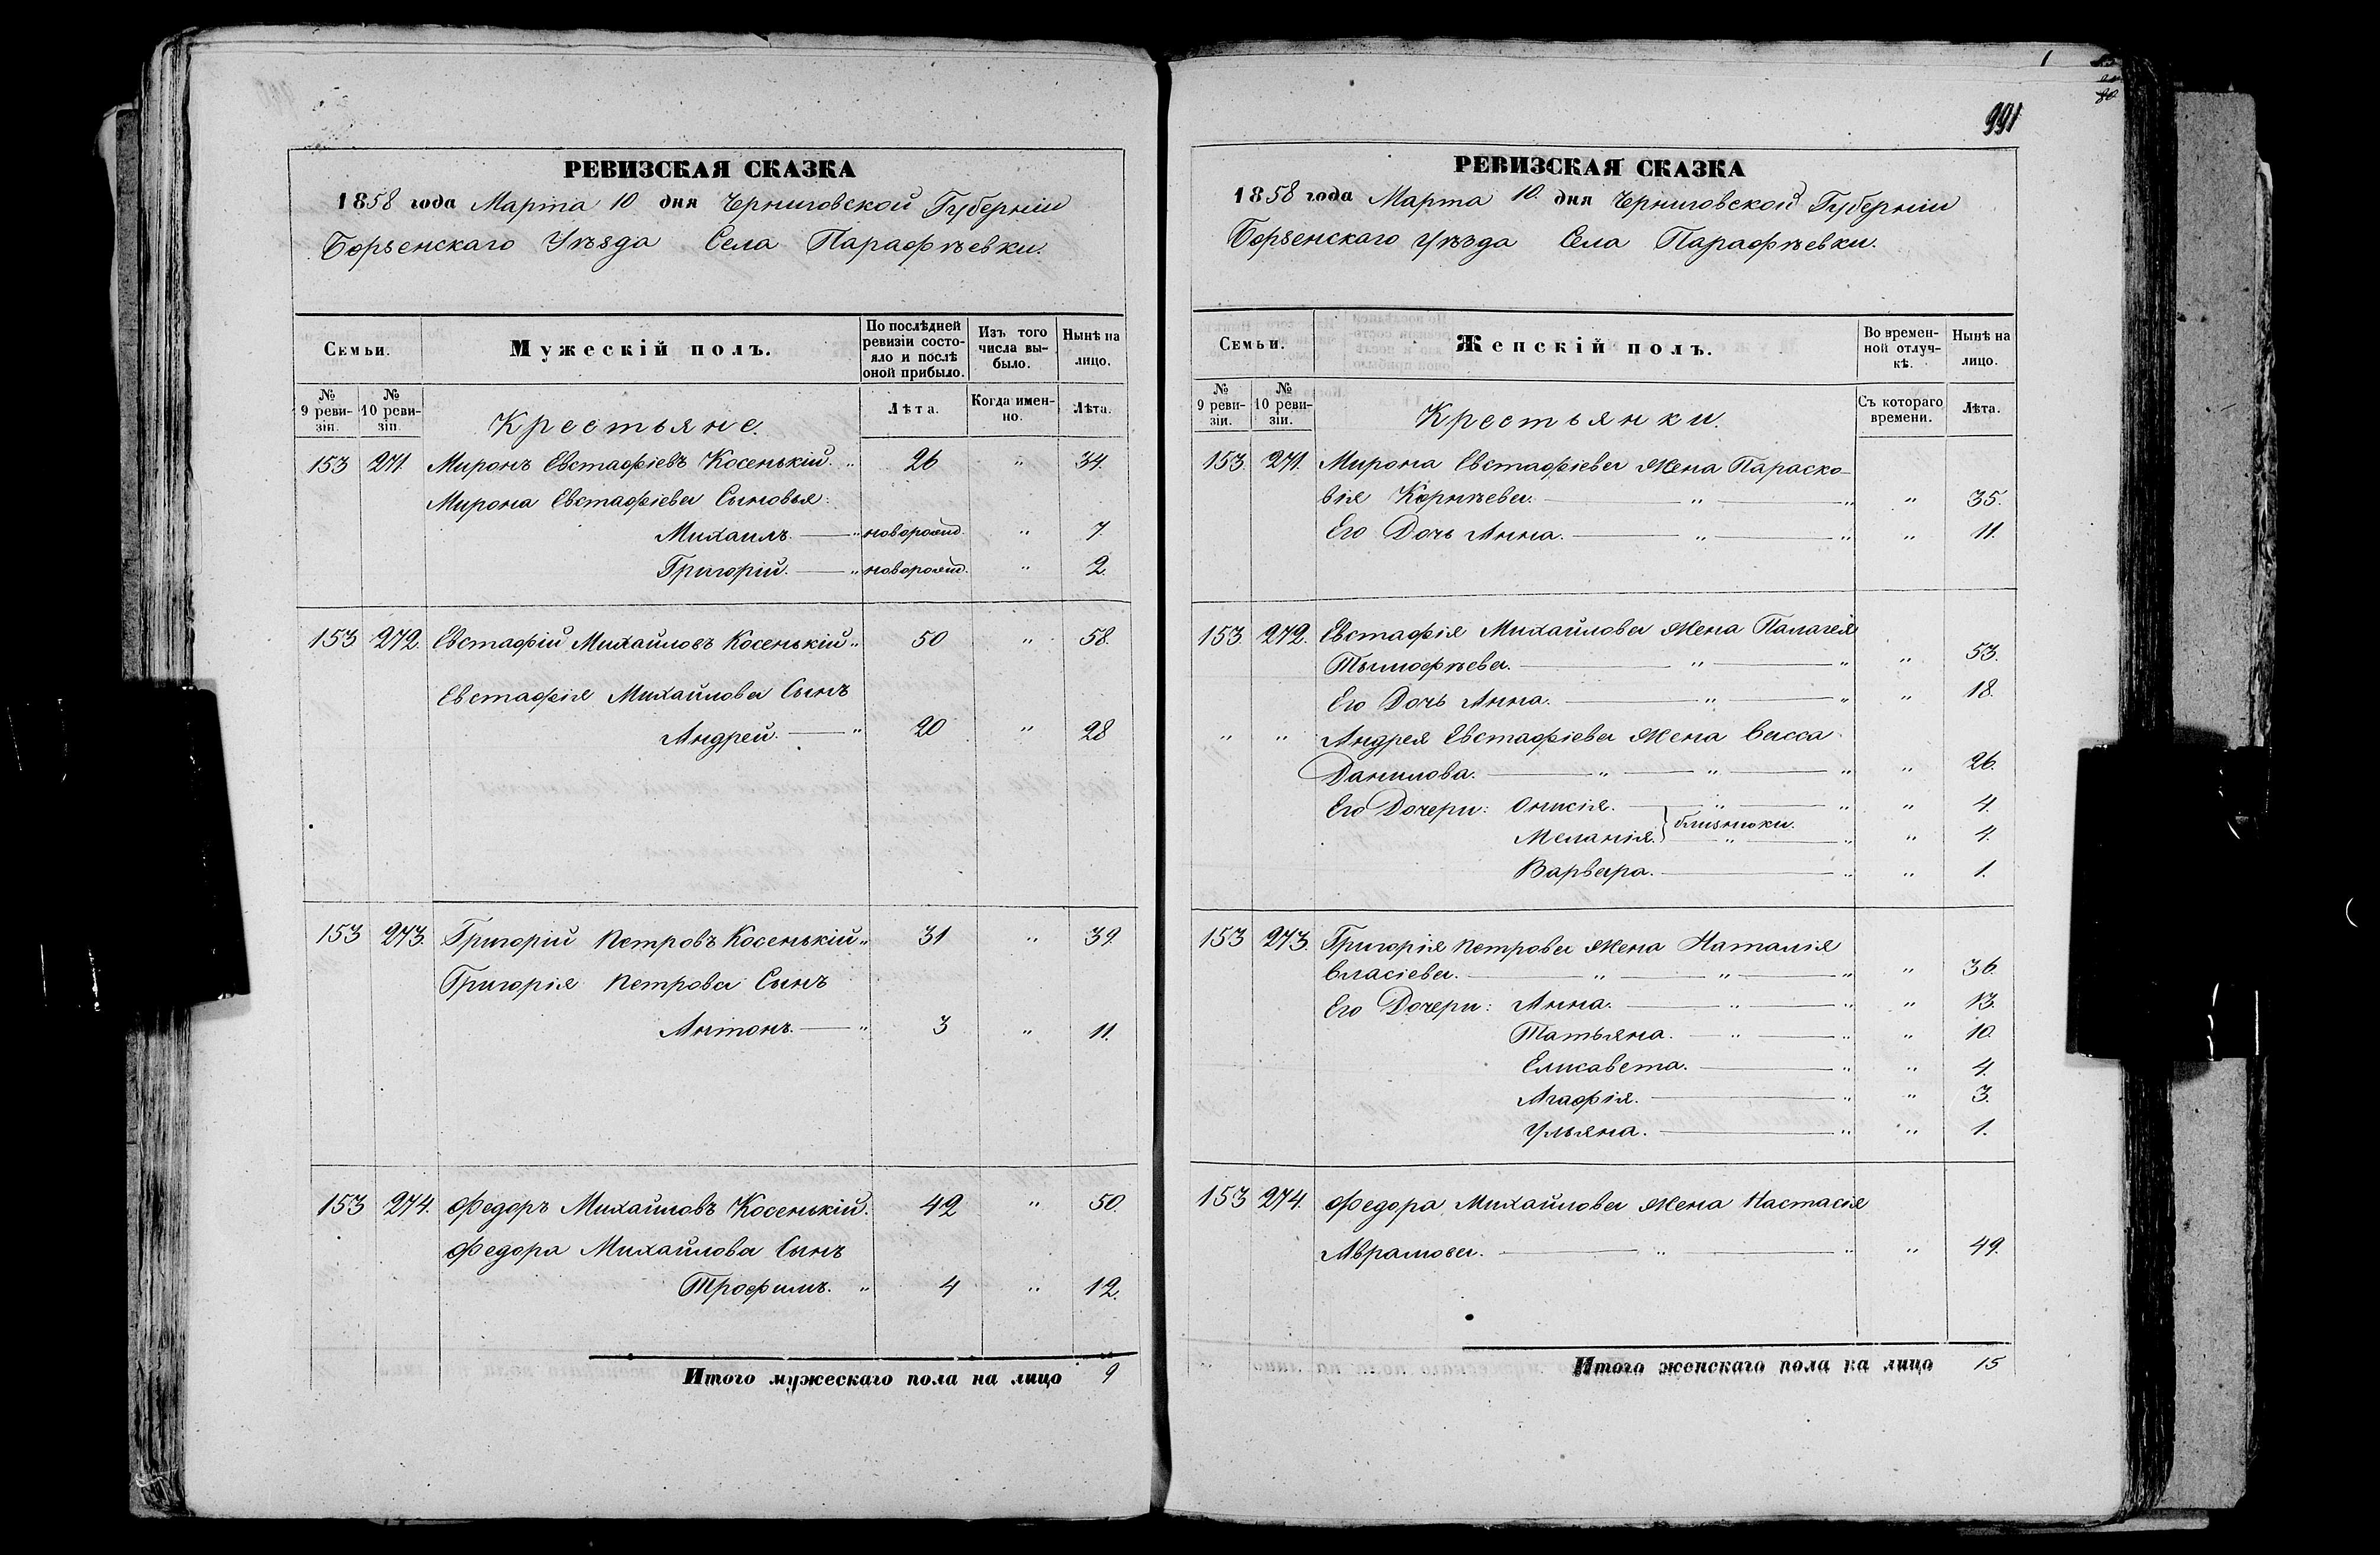 РЕВИЗСКАЯ СКАЗКА
1858 года Марта 10 дня Черниговской Губерніи
Борзенскаго Уѣзда Села Парафѣевки.
Семьи. Мужескій полъ. По послѣдней ревизіи состояло и послѣ оной прибыло. Изъ того числа выбыло. Нынѣ на лицо.
№ 9 ревизіи. № 10 ревизіи. Крестьяне. Лѣта. Когда именно. Лѣта.
153 271. Миронъ Евстафіевъ Косенькій. „ 26 „ 34.
Мирона Евстафіева Сыновья:
Михаилъ. — „ новорожд. „ 7.
Григорій. — „ новорожд. „ 2.
153 272. Евстафій Михайловъ Косенькій „ 50 „ 58.
Евстафія Михайлова Сынъ
Андрей. — „ 20 „ 28
153 273. Григорій Петровъ Косенькій „ 31 „ 39.
Григорія Петрова Сынъ
Антонъ. — „ 3 „ 11.
153 274. Федоръ Михайловъ Косенькій. 42 „ 50.
Федора Михайлова Сынъ
Трофимъ. „ 4 „ 12.
Итого мужескаго пола на лицо 9
1
991
РЕВИЗСКАЯ СКАЗКА
1858 года Марта 10. дня Черниговской Губерніи
Борзенскаго Уѣзда Села Парафѣевки.
Семьи. Женскій полъ. Во временной отлучкѣ. Нынѣ на лицо.
№ 9 ревизіи. № 10 ревизіи. Крестьянки. Съ котораго времени. Лѣта.
153. 271. Мирона Евстафіева Жена Параско-
вія Корнѣева. — „ — „ „ 35.
Его Дочь Анна. — „ — „ „ 11.
153. 272. Евстафія Михайлова Жена Палагея
Тымофѣева. — „ — „ „ 53.
Его Дочь Анна. — „ — „ „ 18.
„ „ Андрея Евстафіева Жена Васса
Данилова. — „ — „ — „ „ 26.
Его Дочери: Онисія. — „ — „ „ 4.
близнюки.
Меланія. — „ — „ „ 4.
Варвара. — „ „ 1.
153 273. Григорія Петрова Жена Наталія
Власіева. — „ — „ — „ „ 36.
Его Дочери: Анна. — „ — „ „ 13.
Татьяна. — „ — „ „ 10.
Елисавета. — „ „ 4.
Агафія. — „ „ 3.
Ульяна. — „ „ 1.
153 274. Федора Михайлова Жена Настасія
Аврамова. — „ — „ „ 49.
Итого женскаго пола на лицо 15